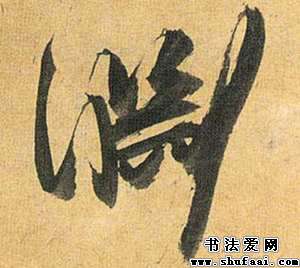 渊
书法爱网
www.shufaai.com